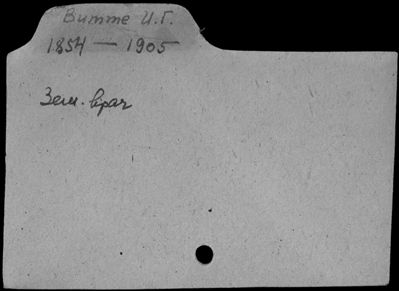 Витте И.Г.
1854 — 1905
Зем. врач